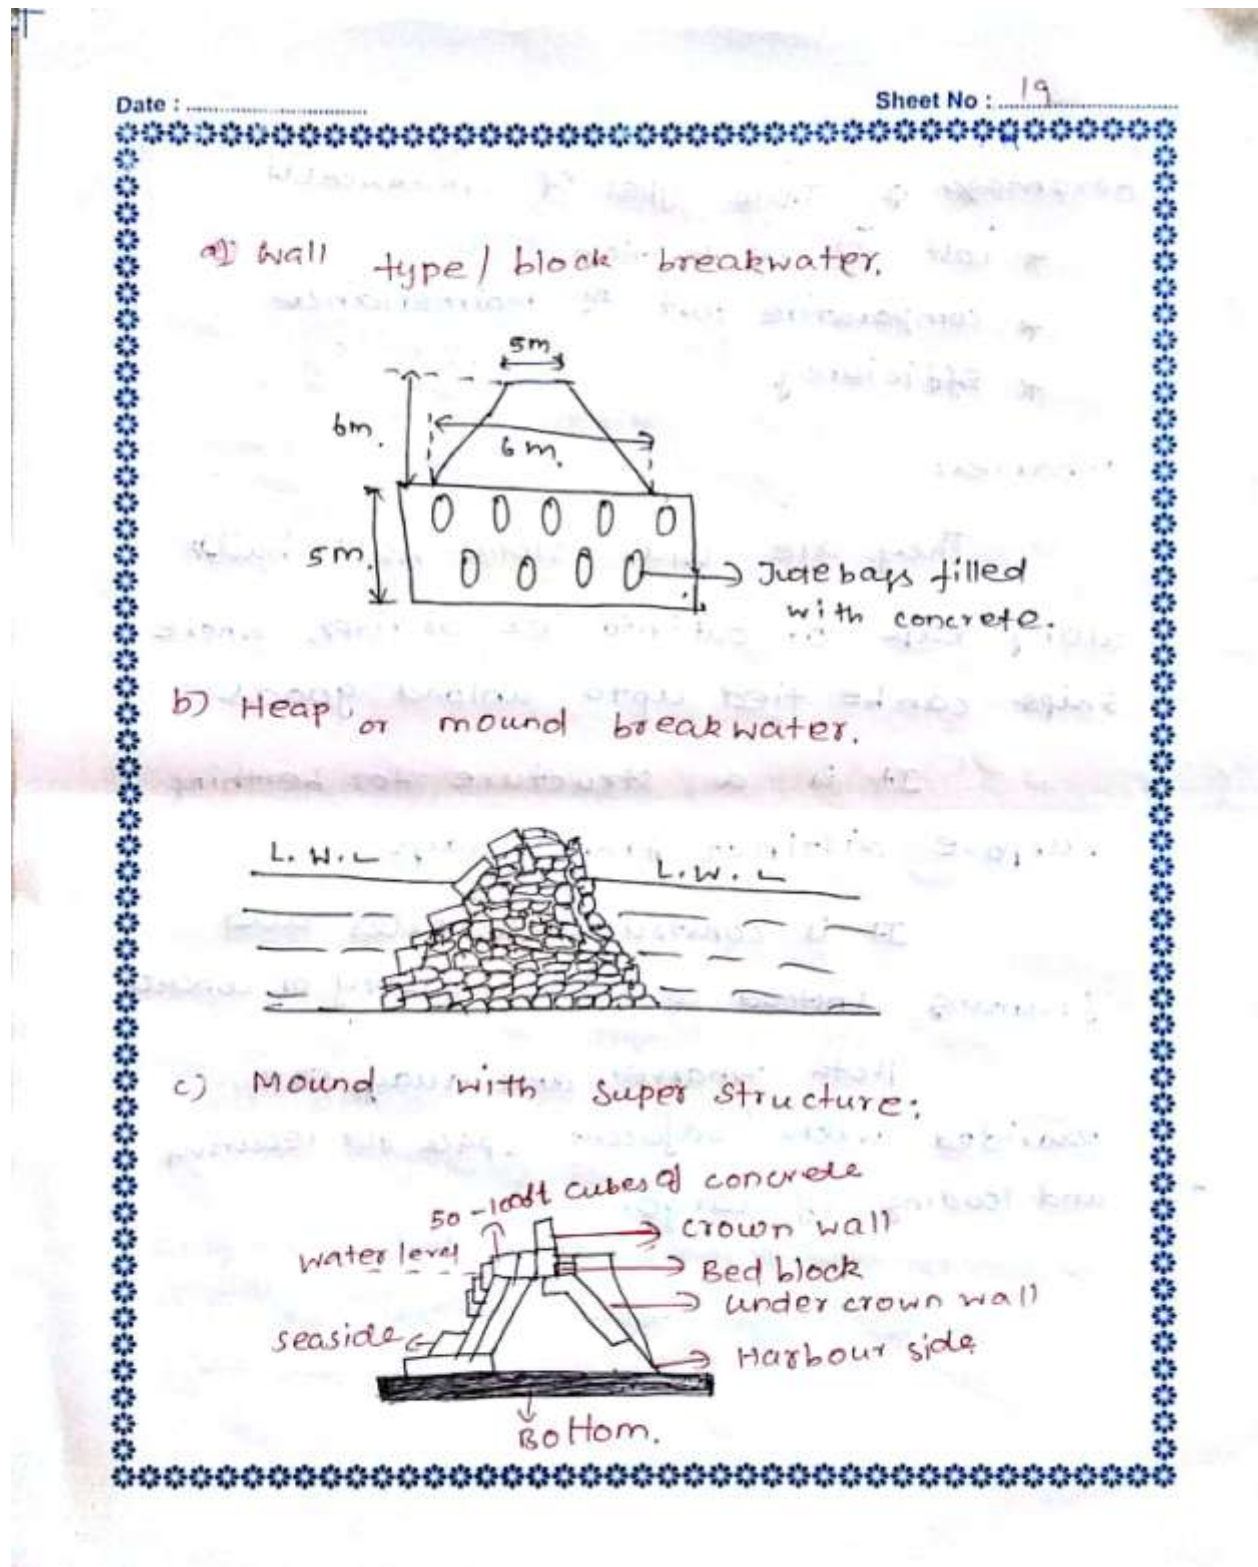 Date : ........................
Sheet No : ...19...
a) Wall type / block breakwater.
5m
6m.
6m.
5m.
Jute bags filled
with concrete.
b) Heap or mound breakwater.
L.W.L
L.W.L
c) Mound with super structure:
50-100ft cubes of concrete
crown wall
water level
Bed block
under crown wall
seaside
Harbour side
Bottom.